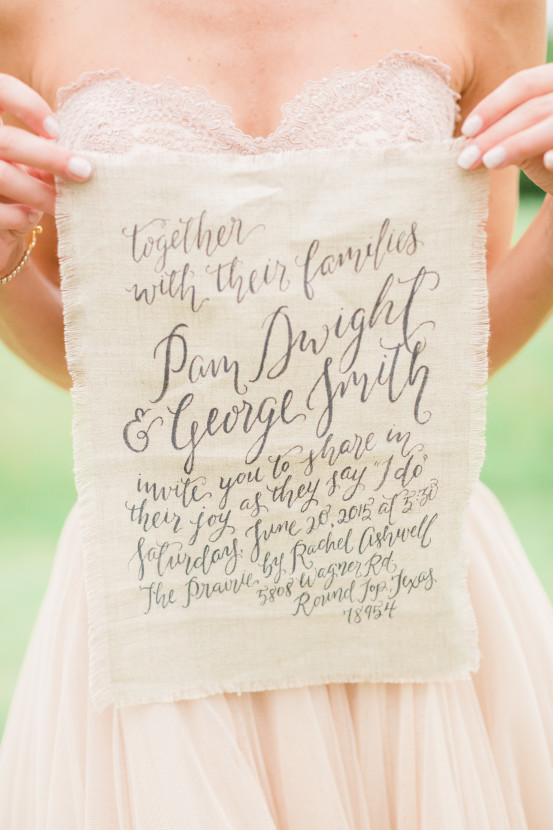 together
with their families
Pam Dwight
& George Smith
invite you to share in
their joy as they say "I do"
Saturday, June 20, 2015 at 5:30
The Prairie by Rachel Ashwell
5808 Wagner Rd.
Round Top, Texas
78954